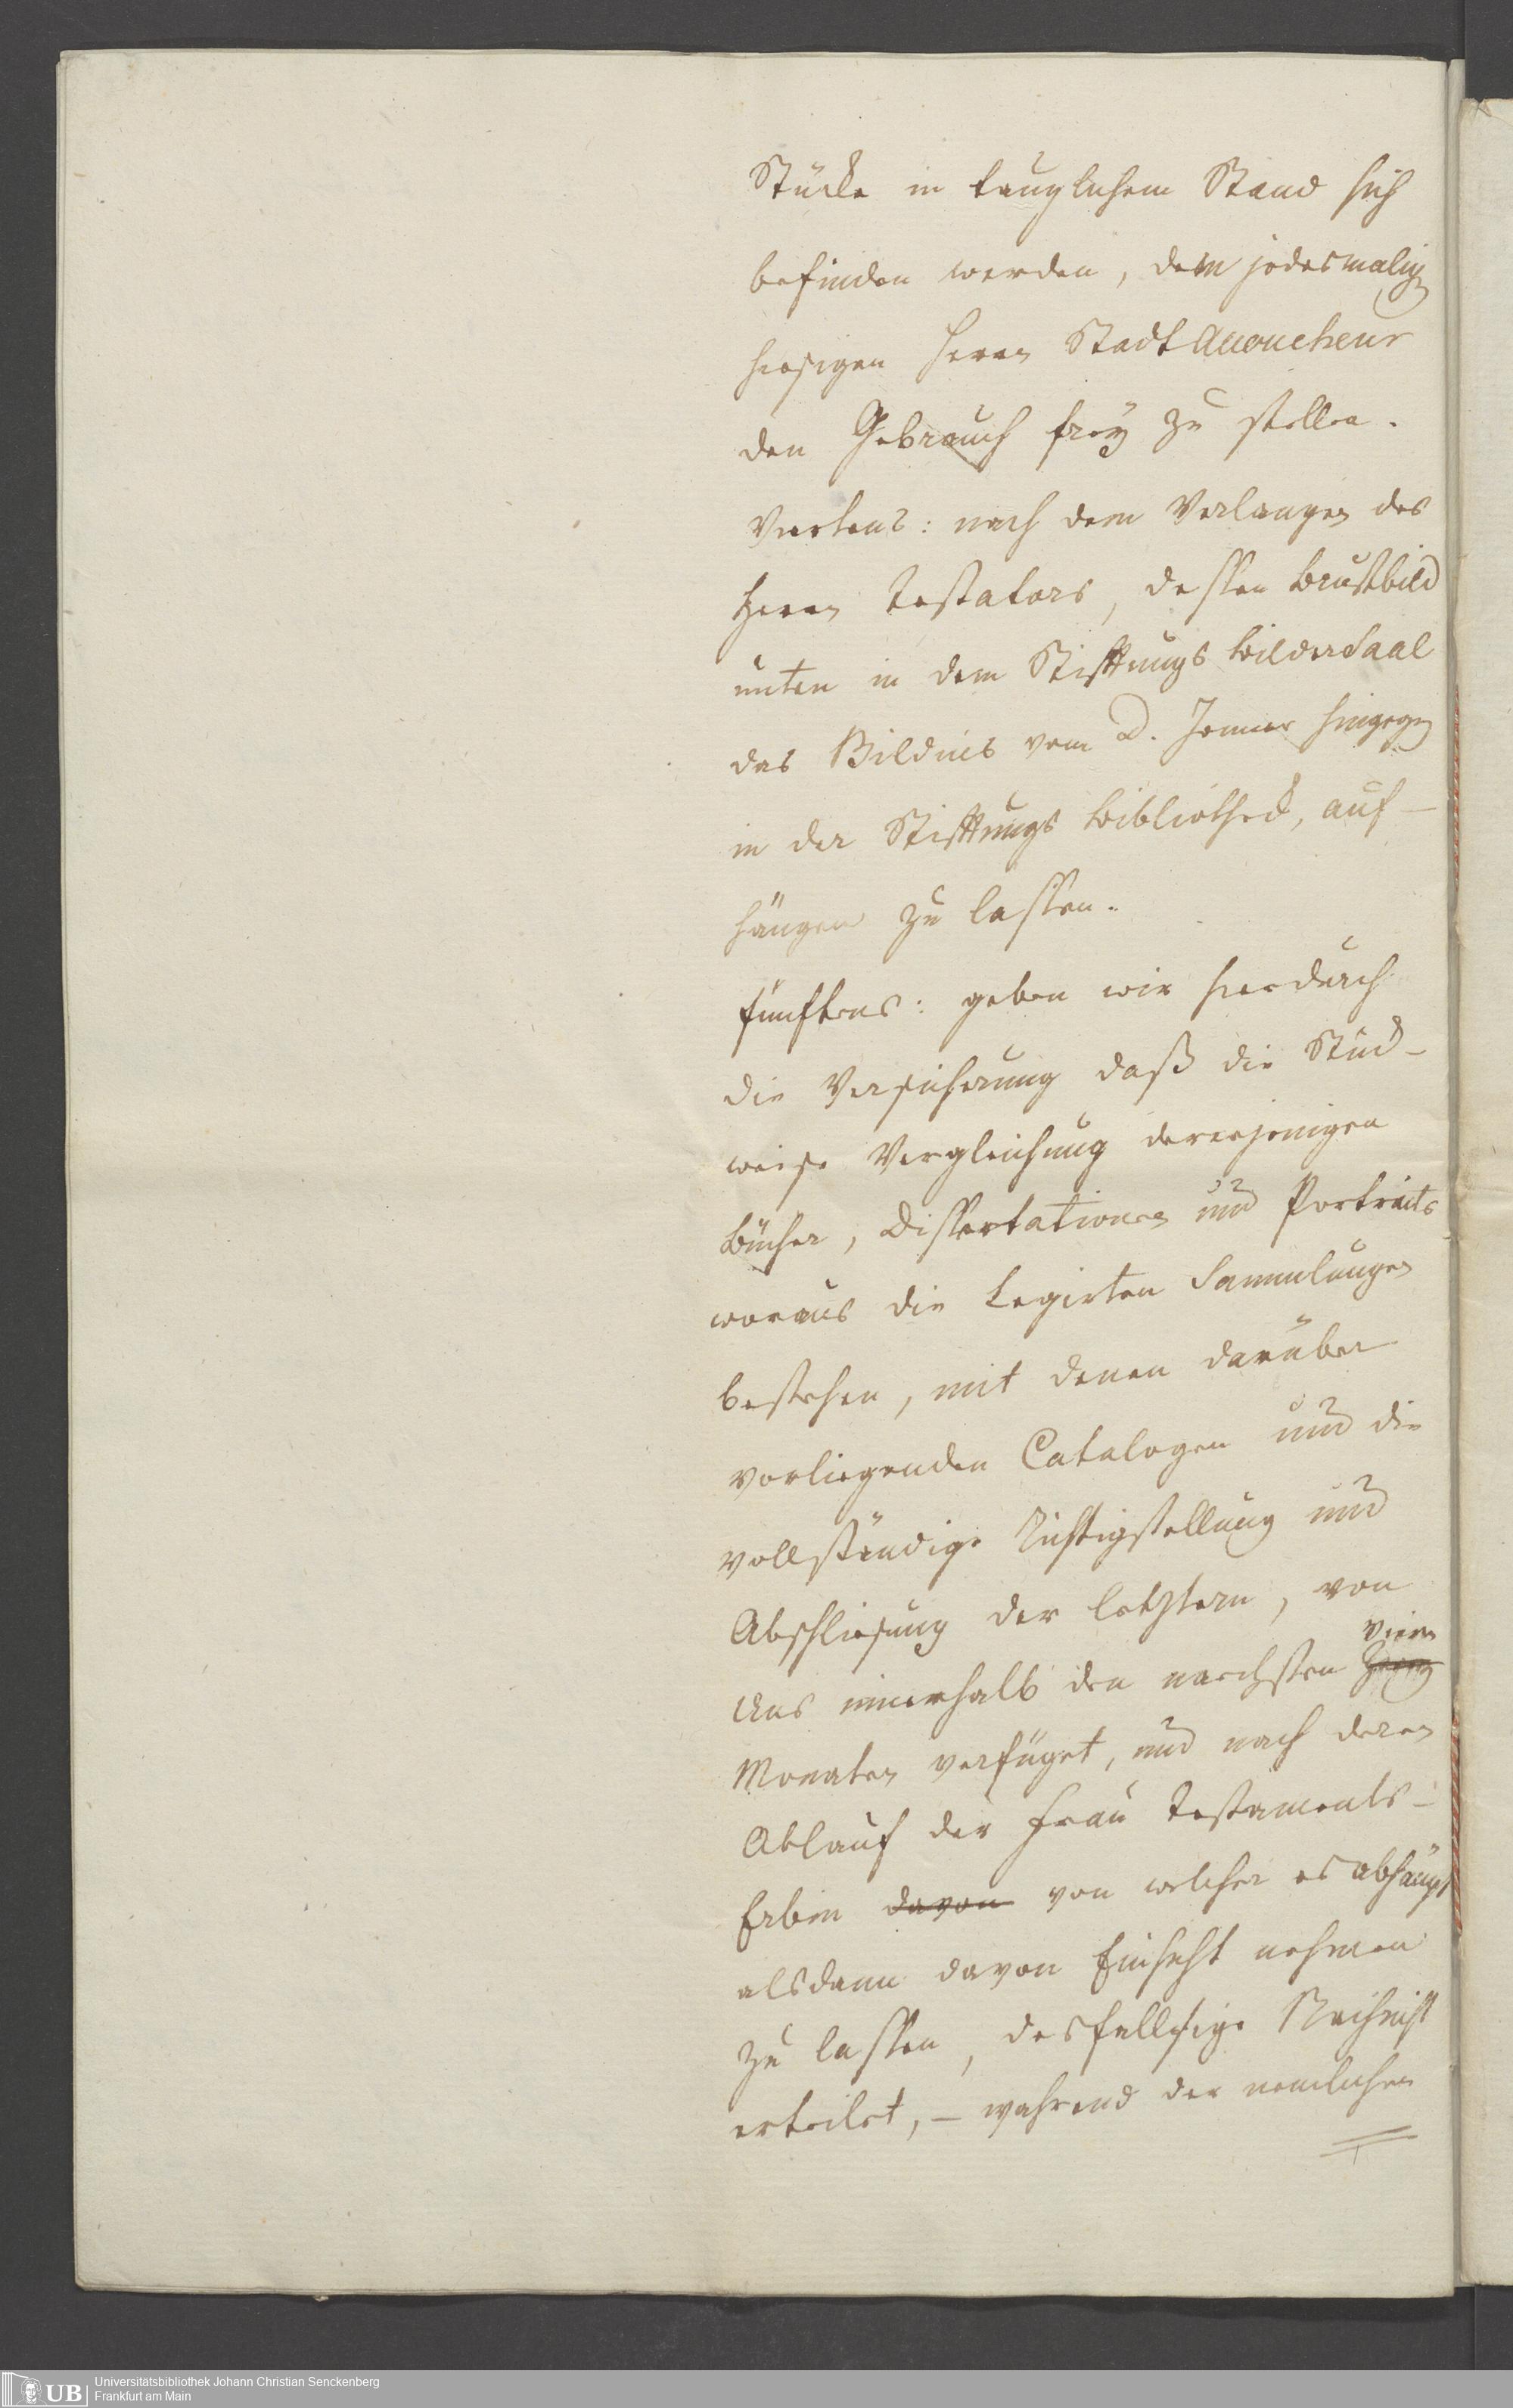 Stücke in tauglichem Stand sich
befinden werden, dem jedesmalig
hiesigen Herrn Stadt Accoucheur
den Gebrauch frey zu stellen.
Viertens: nach dem Verlangen des
Herrn Testators, dessen Brustbild
unten in dem Stifftungs Bildersaal
das Bildnis vom D. Jenner hingegen
in der Stifftungs Bibliotheck, auf-
hängen zu lassen.
fünftens: geben wir hierdurch
die Versicherung daß die Stück-
weise Vergleichung dererjenigen
Bücher, Dissertationen und Portraits
woraus die Legirten Sammlungen
bestehen, mit denen darüber
vorliegenden Catalogen und die
vollständige Richtigstellung und
Abschliesung der letztern, von
vier
Uns innerhalb den naechsten
Monaten verfüget, und nach deren
Ablauf der Frau Testaments-
Erbin davon von welcher es abhängt
alsdann davon Einsicht nehmen
zu lassen, desfallsige Nachricht
erteilet, - während der nemlichen
Universitätsbibliothek Johann Christian Senckenberg
Frankfurt am Main
UB